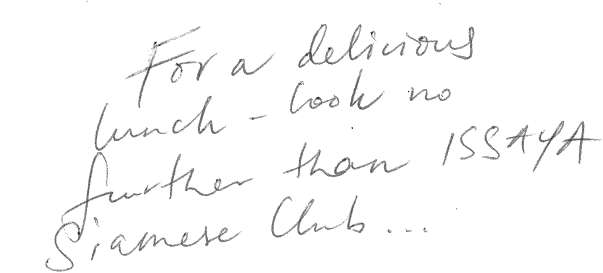 For a delicious
lunch - look no
further than ISSAYA
Siamese Club...